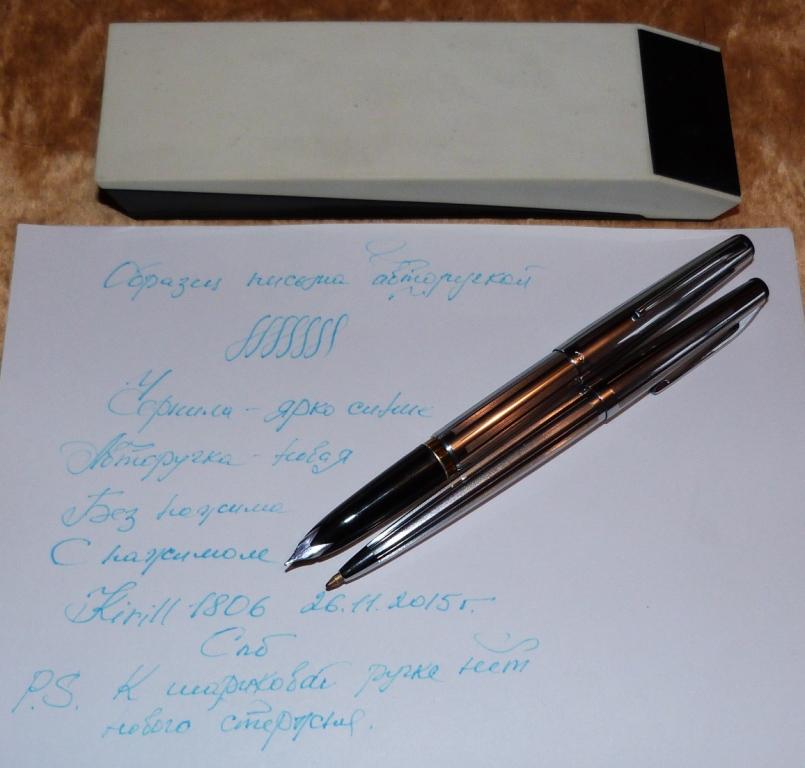 Образец письма авторучкой
Чернила - ярко синие
Авторучка - новая
Без нажима
С нажимом
Kirill-1806 26.11.2015г.
Спб
P.S. К шариковой ручке нет
нового стержня.